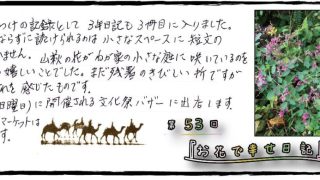 つけの記録として 3年日記も 3冊目に入りました。
ならずに続けられるのは 小さなスペースに 短文の
いません。 山萩の花が わが家の小さな庭に 咲いているのを
嬉しいことでした。 まだ残暑の きびしい 折ですが
れを 感じたものです。
日曜日)に開催される 文化祭バザーに 出店します。
マーケットは
す。
第53回
『お花で幸せ日記』